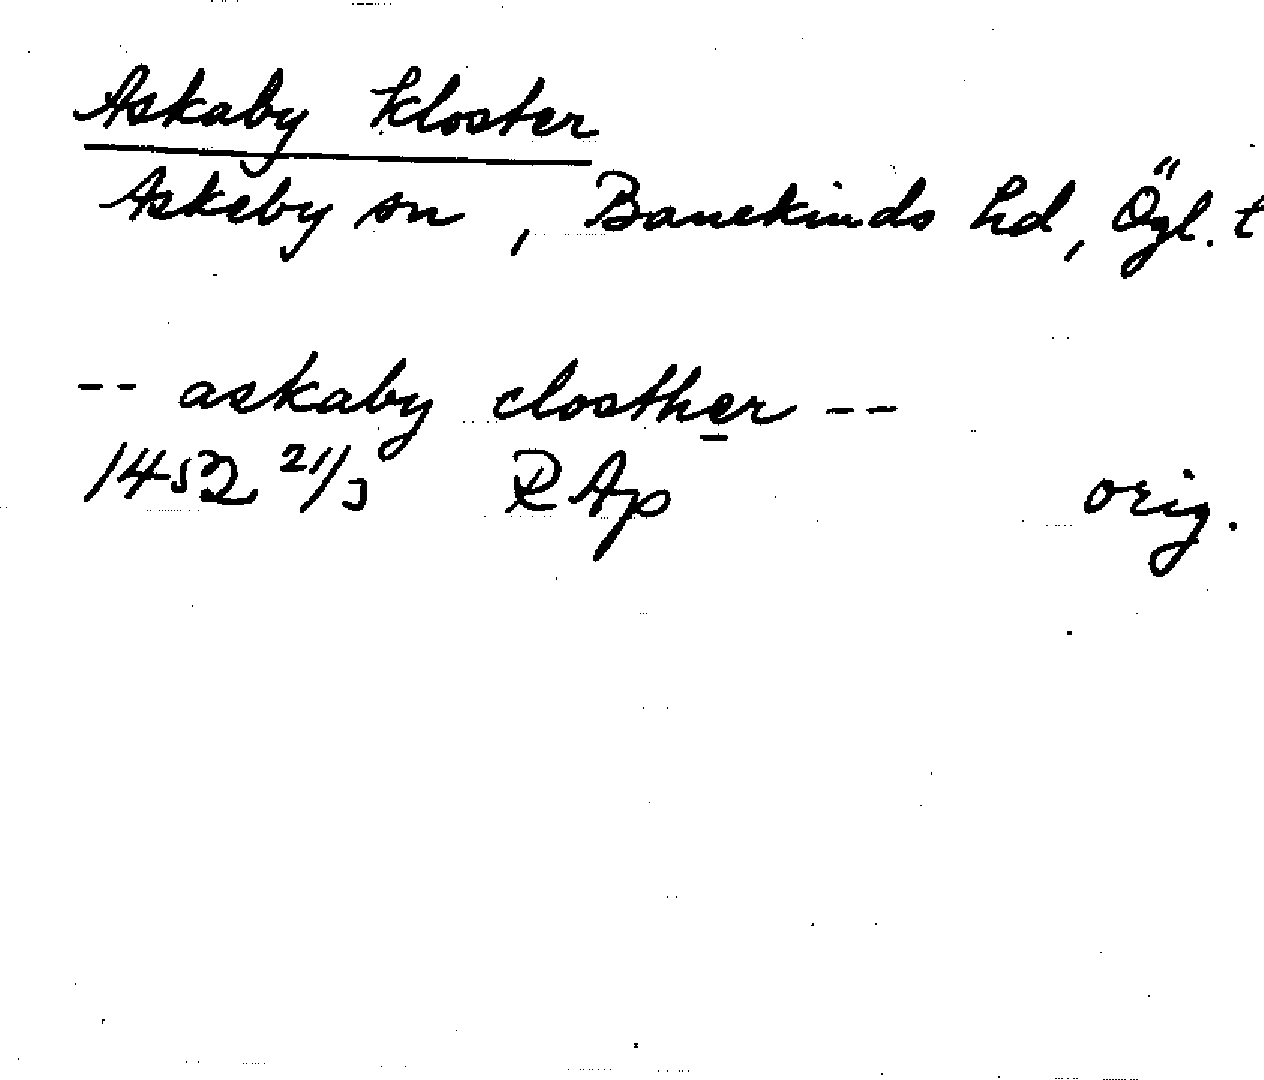 Askaby kloster
Askeby sn, Banekinds hd, Ögl. t
-- askaby closther --
1452 21/3 RAp orig.